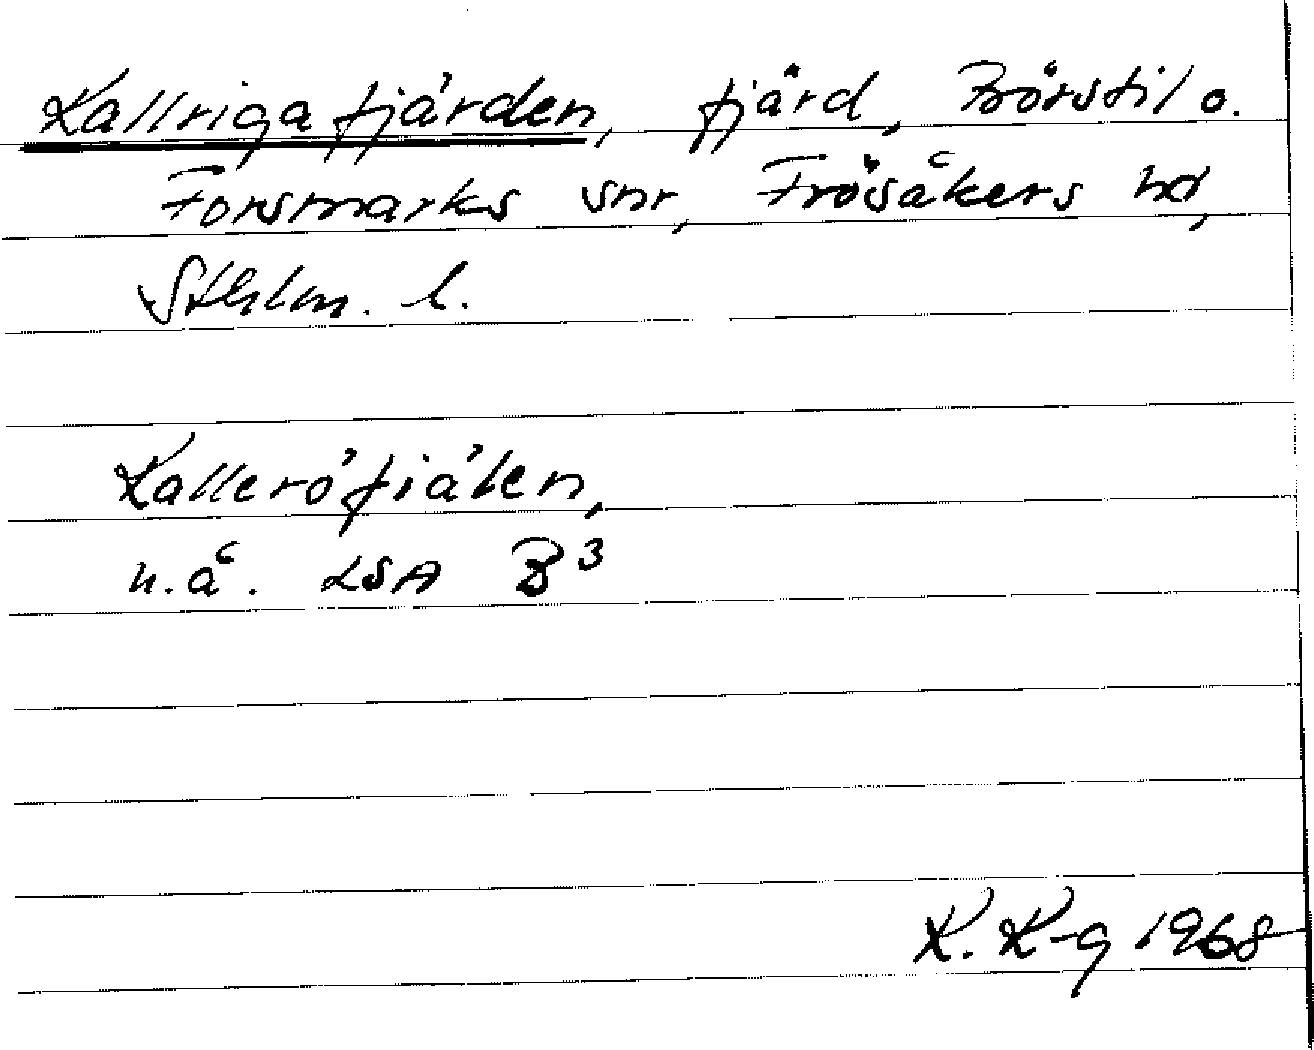 Kallrigafjärden, fjärd, Börstil o.
Forsmarks snr, Frösåkers hd,
Sthlm. l.
Kalleröfiälen,
n.å. LSA B3
K. K-g 1968